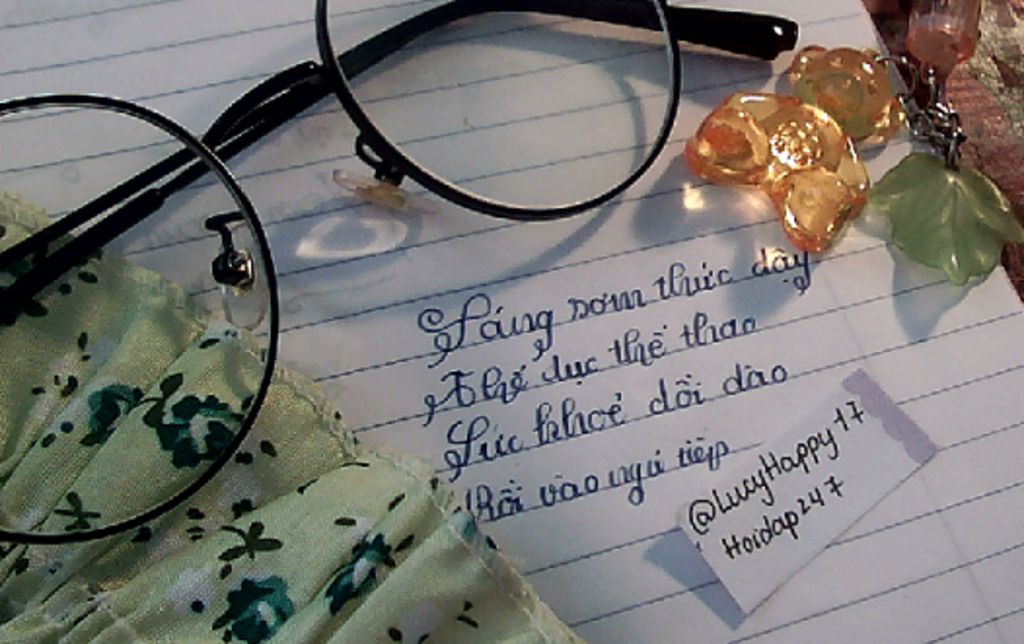 Sáng sơm thức dậy
Thể dục thể thao
Sức khoẻ dồi dào
Rồi vào ngủ tiếp
@LucyHappy17
Hoidap247